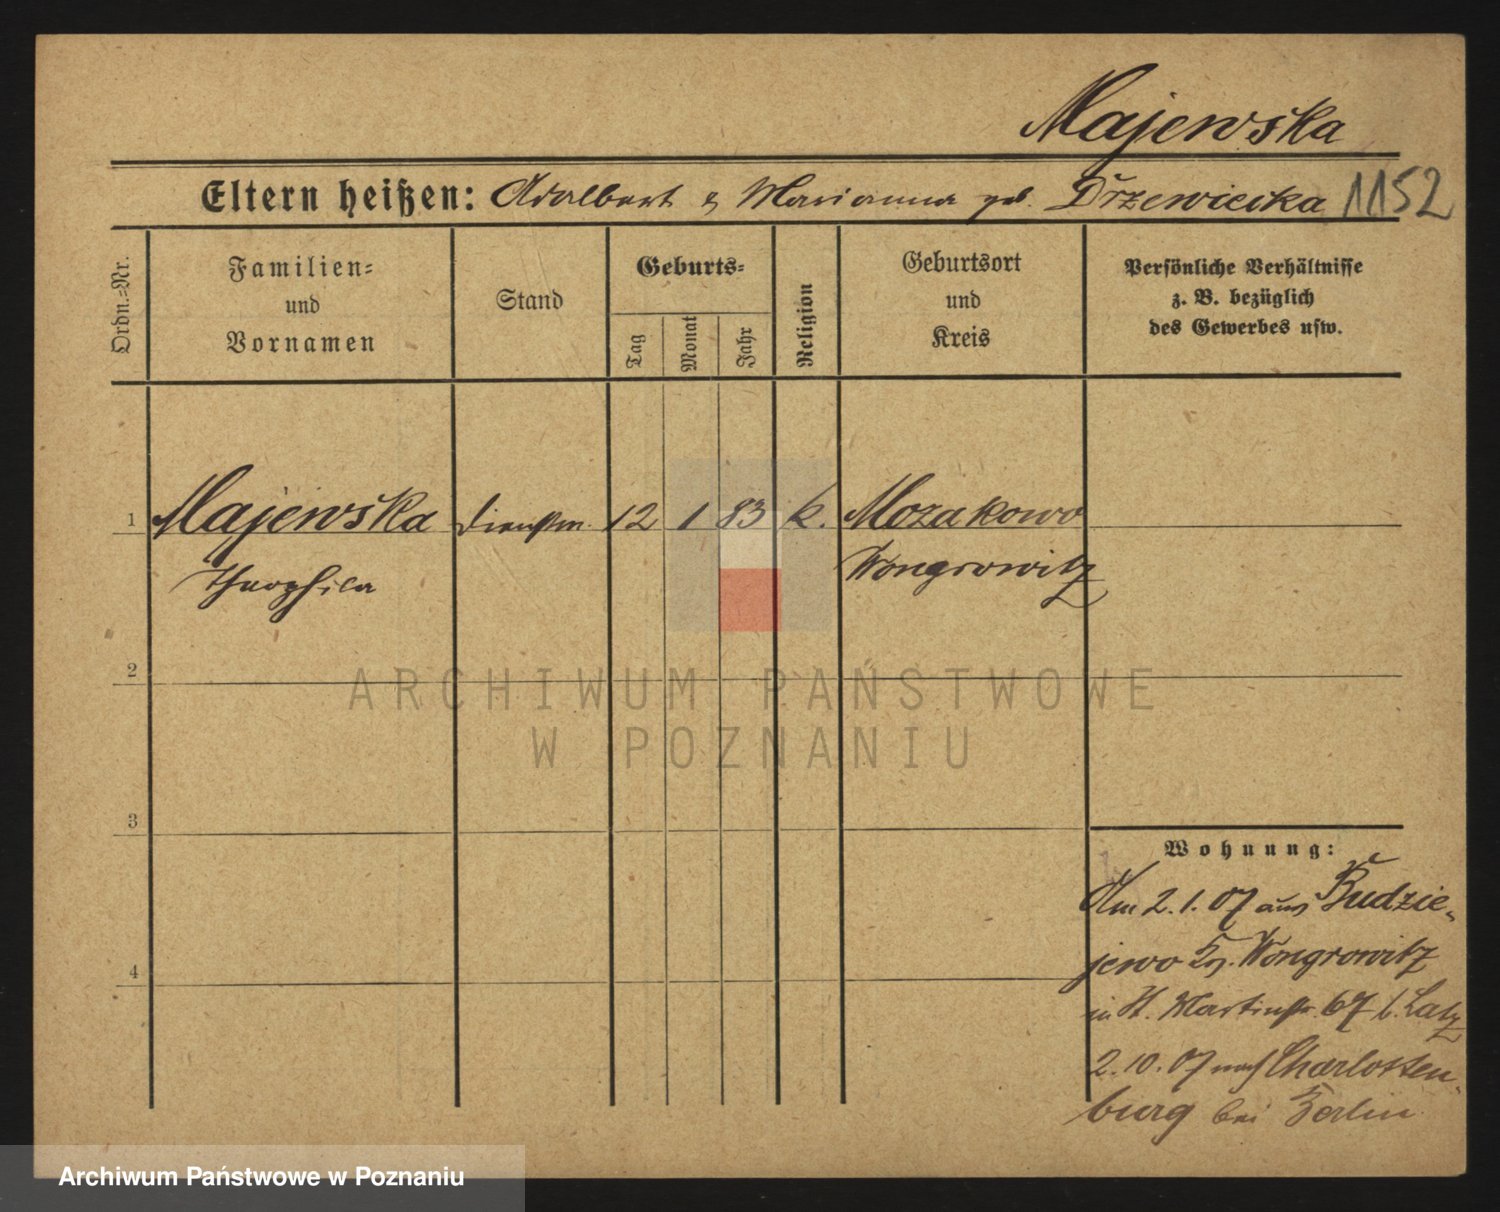 Majewska
Eltern heißen: Adalbert & Marianna geb. Drzewiecka 1152
Ordn.=Nr.
Familien=
und
Vornamen
Stand
Geburts=
Tag
Monat
Jahr
Religion
Geburtsort
und
Kreis
Persönliche Verhältnisse
z. B. bezüglich
des Gewerbes usw.
1 Majewska Dienstm. 12 1 83 k. Mozakowo
Theophila Wongrowitz
2
ARCHIWUM PAŃSTWOWE
W POZNANIU
3
Wohnung:
Am 2.1.07 aus Budzie-
jewo Kr. Wongrowitz
in St. Martinstr. 67 b. Latz
2.10.07 nach Charlotten-
burg bei Berlin
4
Archiwum Państwowe w Poznaniu